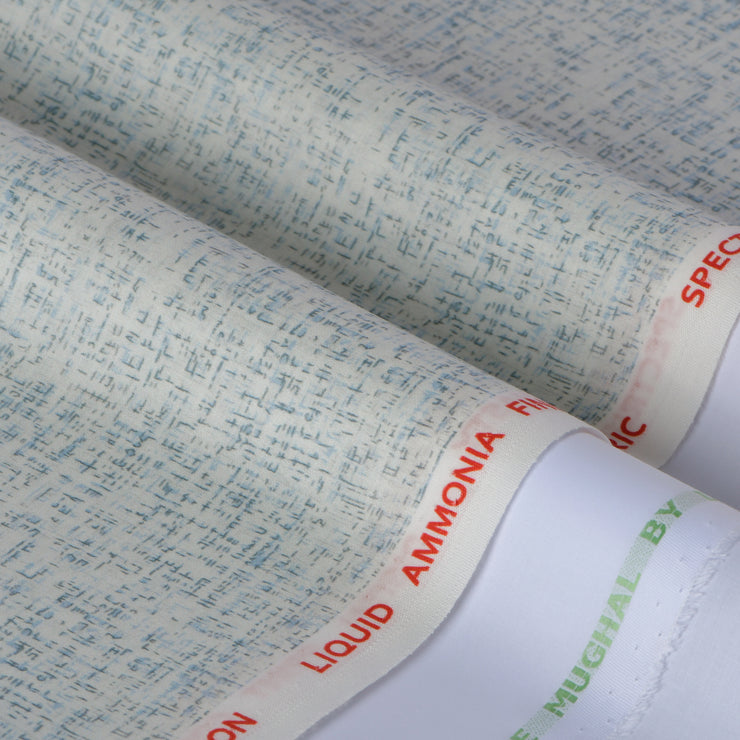 ON LIQUID AMMONIA FIN
RIC
SPECT
E MUGHAL BY